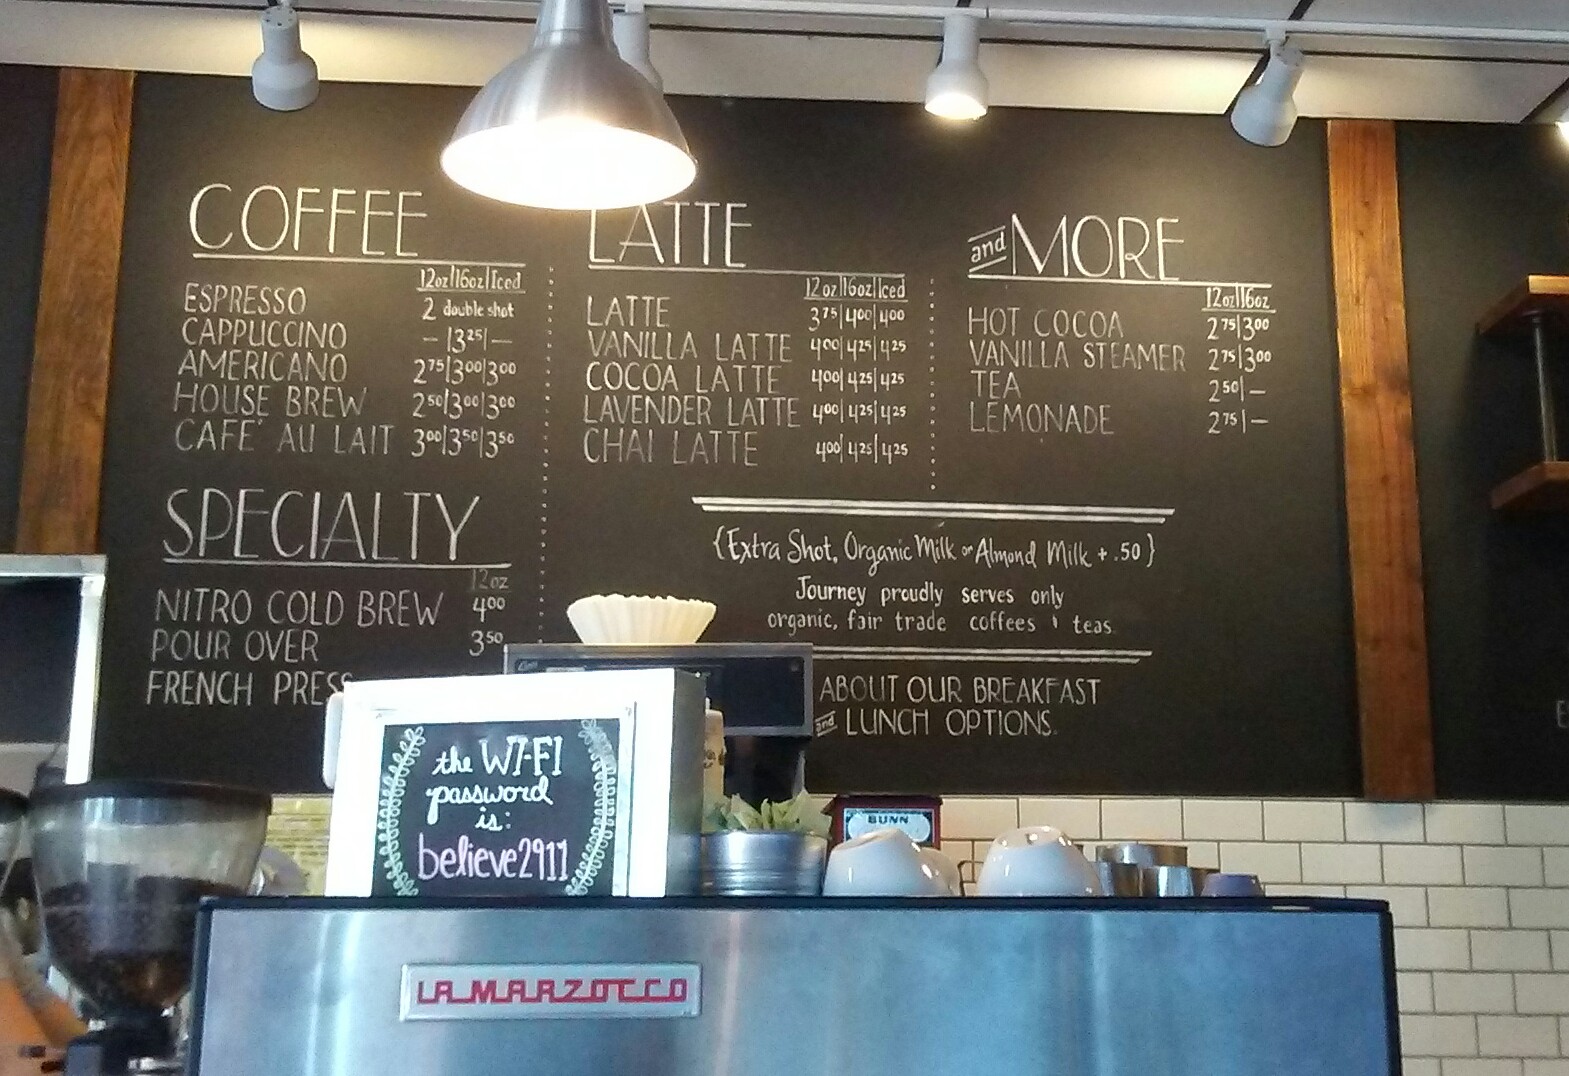 COFFEE
12oz|16oz|Iced
ESPRESSO 2 double shot
CAPPUCCINO - |3 25| -
AMERICANO 2 75|3 00|3 00
HOUSE BREW 2 50|3 00|3 00
CAFE' AU LAIT 3 00|3 50|3 50
SPECIALTY
12oz
NITRO COLD BREW 4 00
POUR OVER 3 50
FRENCH PRESS
LATTE
12oz|16oz|Iced
LATTE 3 75|4 00|4 00
VANILLA LATTE 4 00|4 25|4 25
COCOA LATTE 4 00|4 25|4 25
LAVENDER LATTE 4 00|4 25|4 25
CHAI LATTE 4 00|4 25|4 25
and MORE
12oz|16oz
HOT COCOA 2 75|3 00
VANILLA STEAMER 2 75|3 00
TEA 2 50| -
LEMONADE 2 75| -
{Extra Shot, Organic Milk or Almond Milk + .50}
Journey proudly serves only
organic, fair trade coffees & teas
ABOUT OUR BREAKFAST
and LUNCH OPTIONS.
the WI-FI
password
is:
believe2911
BUNN
LA MARZOCCO